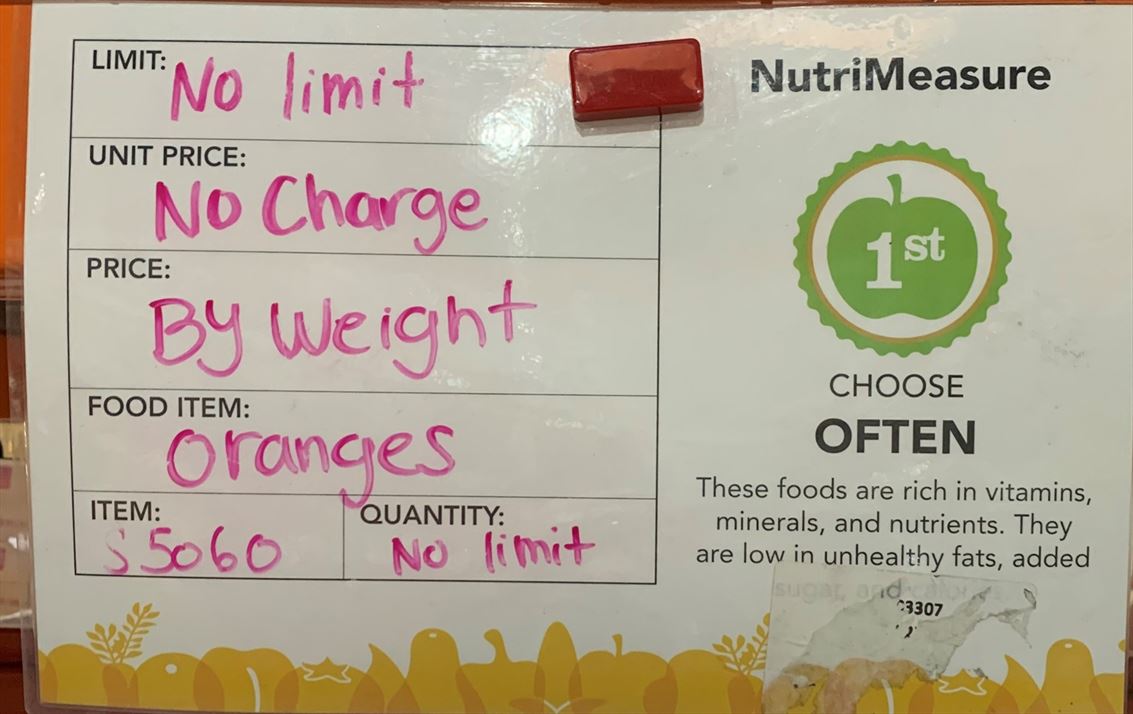 LIMIT:
No limit
UNIT PRICE:
No Charge
PRICE:
By Weight
FOOD ITEM:
Oranges
ITEM:
S5060
QUANTITY:
No limit
NutriMeasure
1st
CHOOSE
OFTEN
These foods are rich in vitamins,
minerals, and nutrients. They
are low in unhealthy fats, added
sugar, and
3307